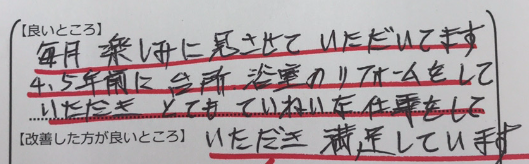 【良いところ】
毎月 楽しみに見させて いただいてます
4、5年前に 台所、浴室のリフォームをして
いただき とてもていねいな仕事をして
【改善した方が良いところ】 いただき 満足しています